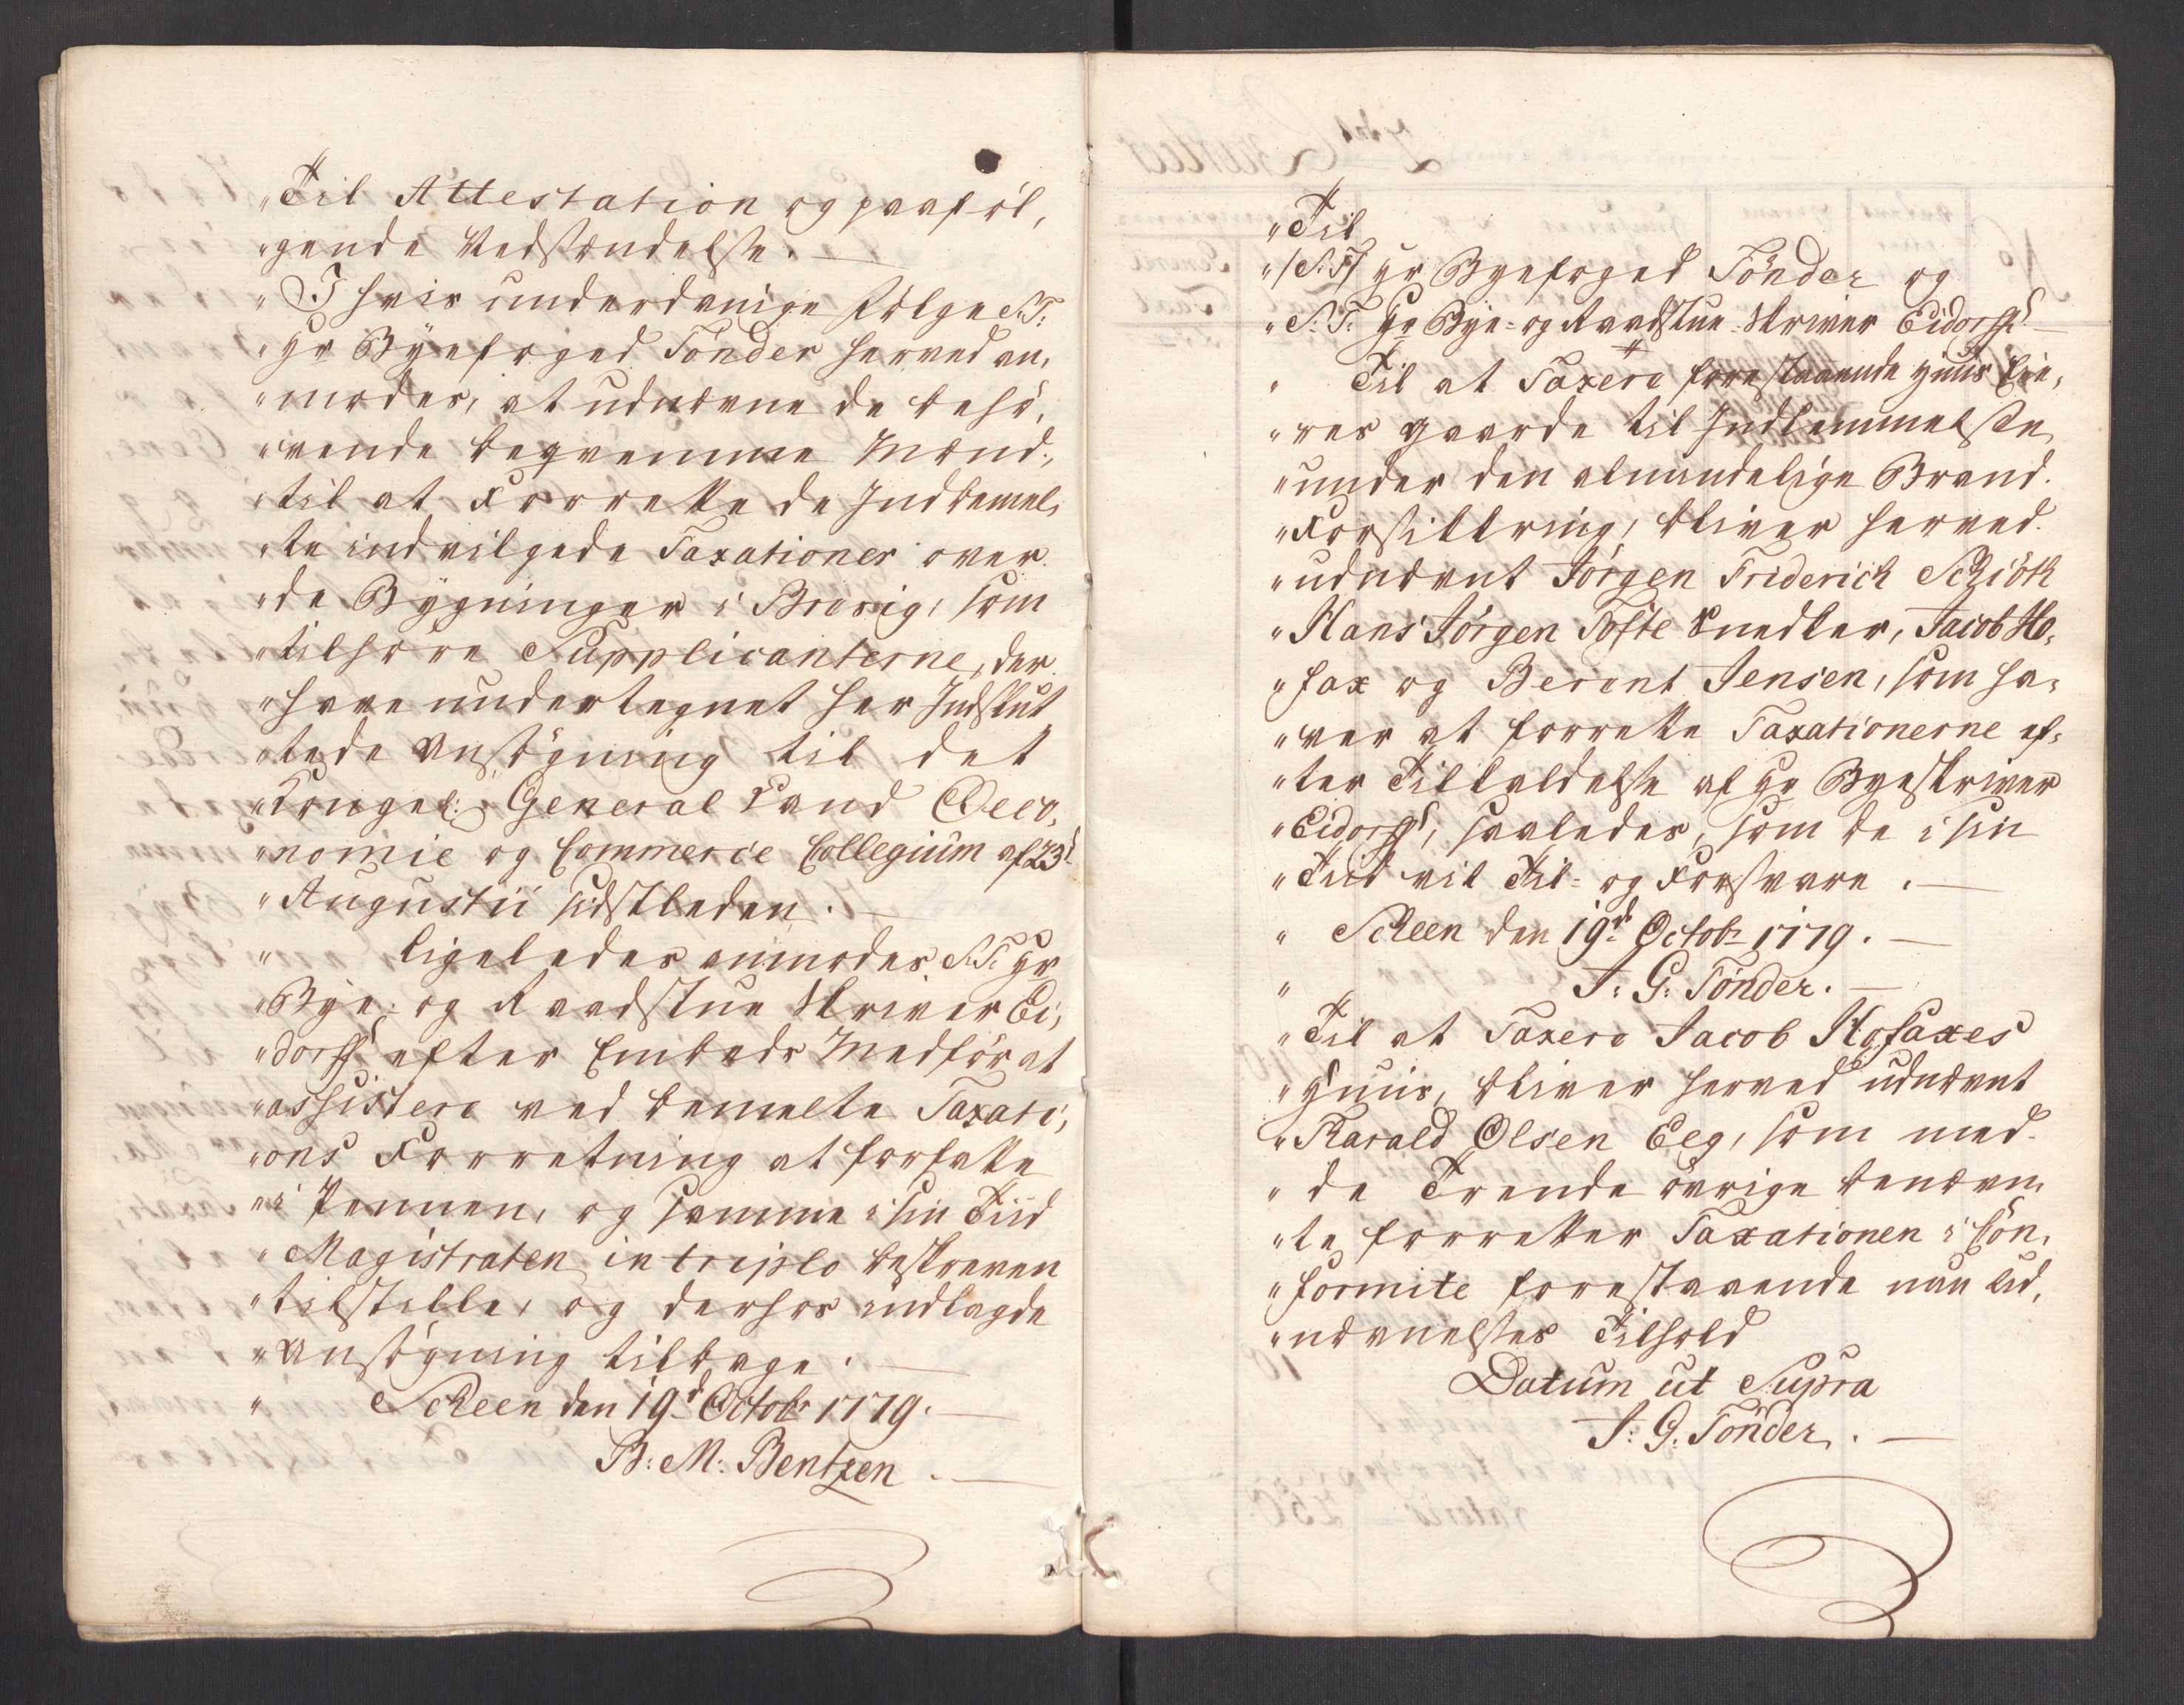 "Til Attestation og paaføl,
"gende Vedstændelse. —
"I hvis underdanige følge S:T:
"Hr Byefoged Tønder herved an,
"modes, at udnævne de behø,
"vende beqvemme Mænd,
"til at Forrette de Indbemel,
"te indvilgede Taxationer over
"de Bygninger i Brevig, som
"tilhøre Supplicanterne, der
"have undertegnet her Indslut
"tede Ansøgning til det
"Kongel: General Land Oeco,
"nomie og Commerce Collegium af 23d
"Augustii sidstleden. —
" Ligeledes anmodes S:T: Hr
"Bye- og Raadstue Skriver Ei,
"dorff efter Embeds Medfør at
"assistere ved bemelte Taxati,
"ons Forretning at forfatte
"i Pennen, og samme i sin Tiid
"Magistraten in triplo beskreven
"tilstille, og derhos indlagde
"Ansøgning tilbage. —
" Scheen den 19d Octobr 1779. —
B: M: Bentzen. —
"Til
"/S:T/ Hr Byefoged Tønder og
"S:T: Hr Bye- og Raadstue-Skriver Eidorff —
" Til at Taxere forestaaende Huus Eie,
"res Gaarde til Indlemmelsen
"under den almindelige Brand-
"Forsikkring, bliver herved
"udnævnt Jørgen Friderich Schiöth
"Hans Jörgen Tofte Snedker, Jacob Ho,
"fax og Berent Jensen, som ha,
"ver at forrette Taxationerne ef,
"ter Tilkaldelse af Hr Byeskriver
"Eidorff, saaledes, som de i sin
"Tiid vil Til- og Forsvare. —
" Scheen den 19d Octobr 1779. —
" J: G: Tönder. —
"Til at Taxere Jacob Hofaxes
"Huus, bliver herved udnævnt
"Harald Olsen Eeg, som med
"de Trende øvrige benævn,
"te forretter Taxationen i Con,
"formite forestaaende min Ud,
"nævnelses Tilhold
Datum ut Supra
J: G: Tönder. —